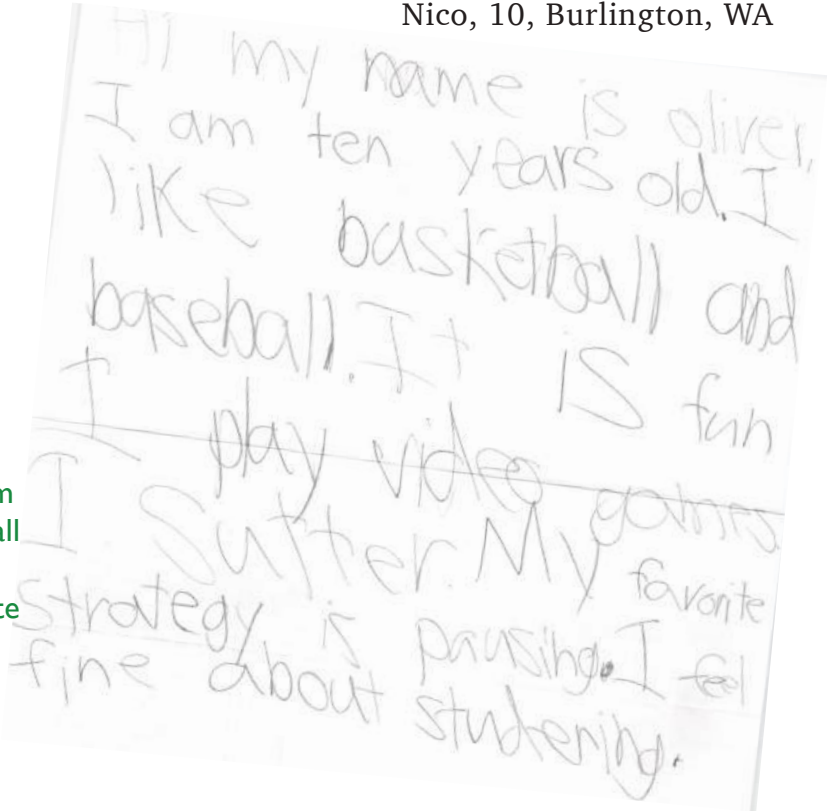 Nico, 10, Burlington, WA
Hi my name is oliver,
I am ten years old. I
like basketball and
baseball. It is fun
I play video games
I Sutter. My favorite
strategy is pausing. I feel
fine about studtering.